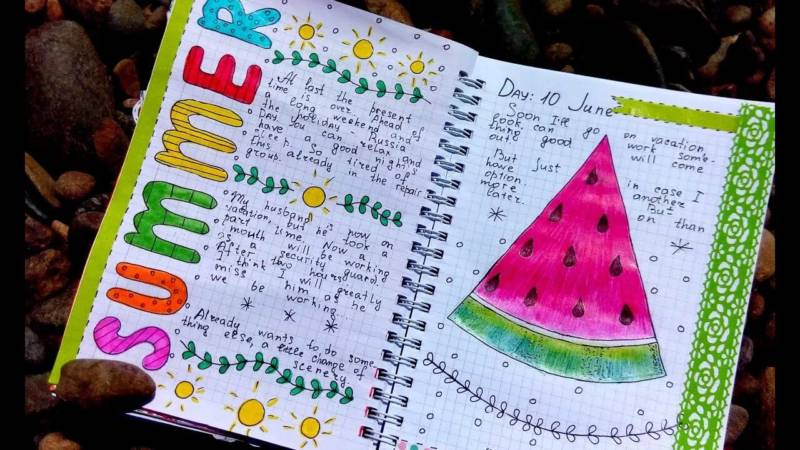 SUMMER
At last the present
time is over. Ahead of
the long weekend and
a holiday Russia
Day. You can relax and
have a good night's
sleep. So tired of
this already in the repair
group.
My husband is now on
vacation, but he took a
part time. Now a
mouth will be working
as a security guard.
After two hours
I think I will greatly
miss him as he
we be working...
Already wants to do some
thing else, a little change of
scenery.
Day: 10 June
Soon I'll go on vacation
look can work some-
thing good will come
out.
But just in case I
have another
option. But
more on than
later.